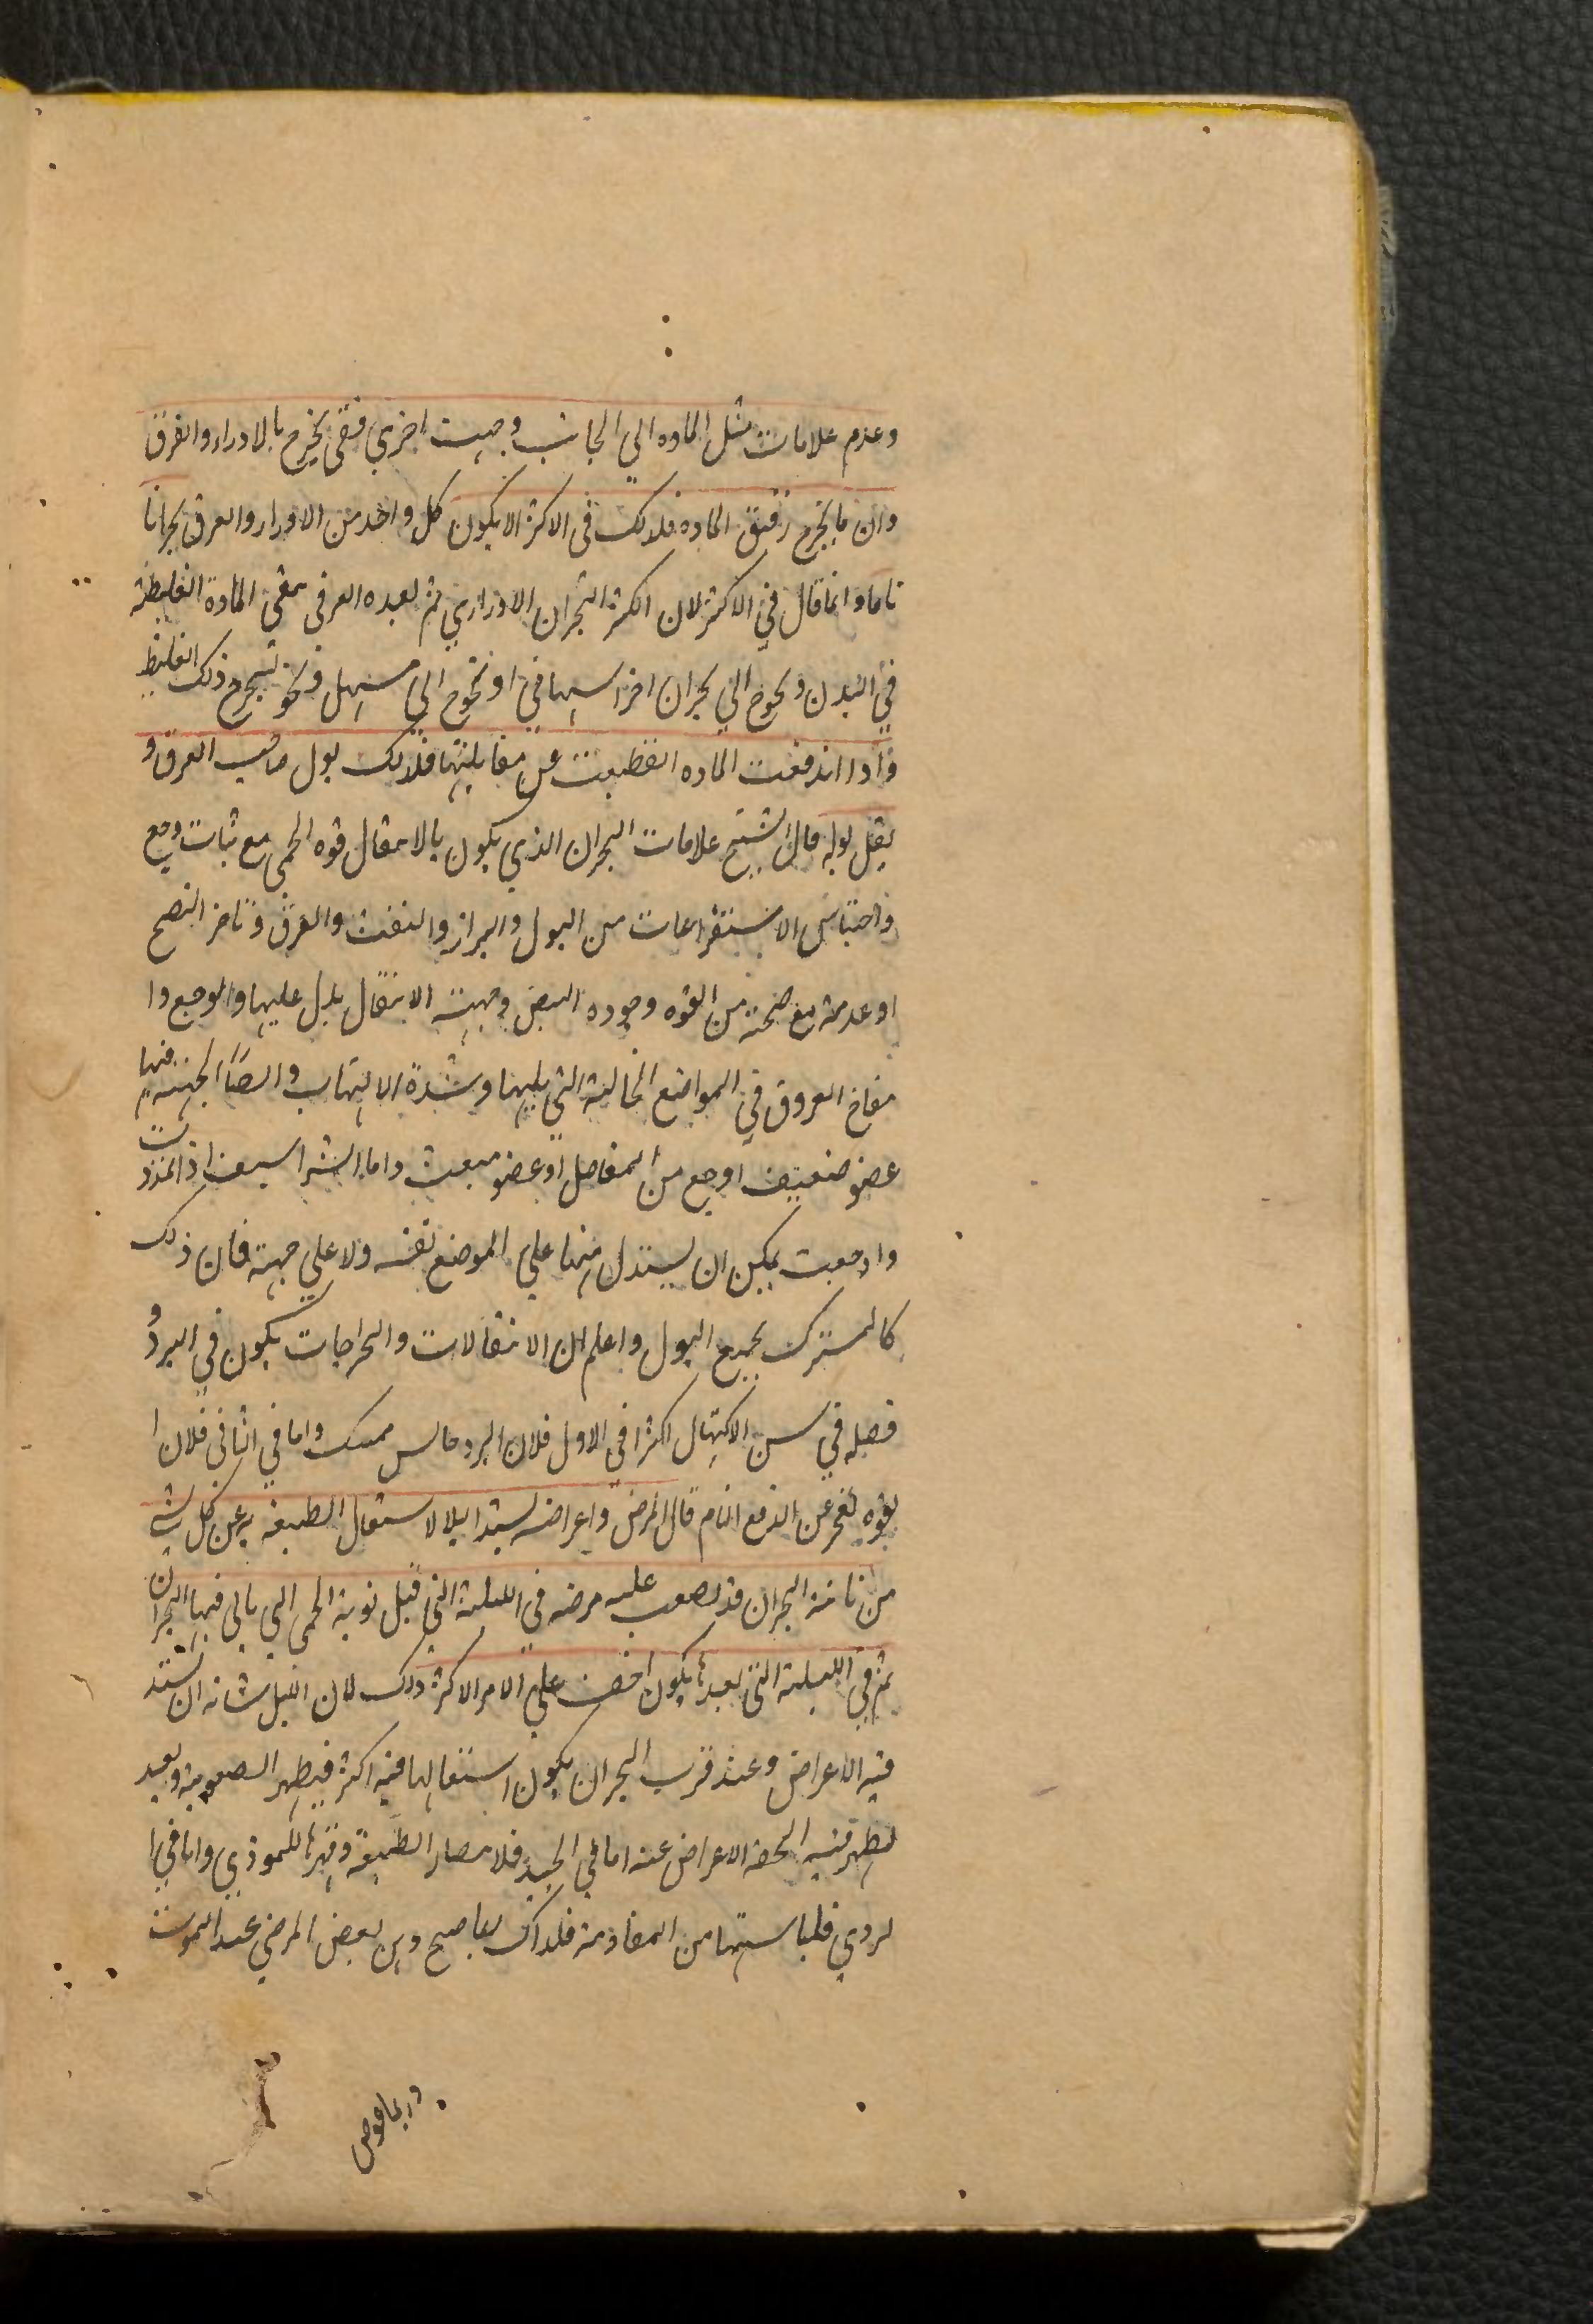 وعدم علامات مثل الماده الي الجانب وجهت اخري فقى يخرج بالادرار والعرق
وان ما يخرج رقيق الماده فلذلك فى الاكثر الا يكون كل واحد من الادرار والعرق بحرانا
تاما وانما قال في الاكثر لان اكثر البحران الادراري ثم بعده العرقى تبقى المادة الغليظة
في البدن ويحوج الي بحران اخر اسهالي او يحوج الي مسهل قوي يخرج ذلك الغليظ
واذا اندفعت الماده انقطعت عن مقابلتها فلذلك بول صاحب العرق و
يقل بوله قال الشيخ علامات البحران الذي يكون بالانتقال قوه الحمى مع ثبات وجع
واحتباس الاستفراغات من البول والبراز والنفث والعرق وتاخر النضج
او عدمه مع صحة من القوه وجوده النبض وجهة الانتقال يدل عليها والوجع وا
نتفاخ العروق في المواضع الخالية التي يليها وشدة الالتهاب وايضا الجهة فيها
عضو ضعيف اوجع من المفاصل او عضو ... واما الشراسيف اذا تمددت
واوجعت يمكن ان يستدل منها على الموضع نفسه ولا علي جهة فان ذلك
كالمشترك بجميع البول واعلم ان الانتقالات والخراجات يكون في البرد و
فصله في سن الاكتهال اكثر اما في الاول فلان البرد حابس ممسك واما في الثاني فلان ا
لقوه تعجز عن الدفع التام قال المرض واعراضه يشتد ليلا لاشتغال الطبيعه به عن كل شي
من ناحية البحران قد يصعب عليه مرضه في الليلة التي قبل نوبة الحمى التي ياتي فيها البحران
ثم في الليلة التي بعدها يكون اخف علي الامر الاكثر ذلك لان الليل شانه ان يشتد
فيه الاعراض وعند قرب البحران يكون اشتغالها فيه اكثر فيظهر الصعوبة وبعد
يظهر فيه الخفه الاعراض عنه اما في الجيد فلانتصار الطبيعة وقهرها للموذي واما في ا
لردي فلياسها من المقاومة فلذلك بما صح وبن بعض المرضي عند الموت
وربما عوض